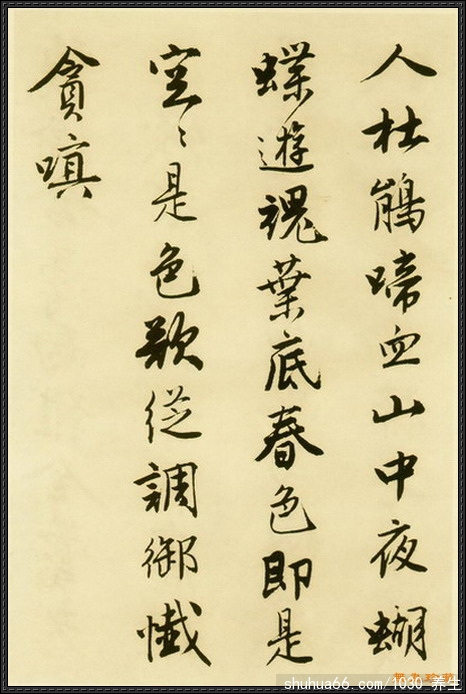 人杜鵑啼血山中夜蝴
蝶遊魂葉底春色即是
空〻是色欲從調御懺
貪嗔
shuhua66.com/1030_养生